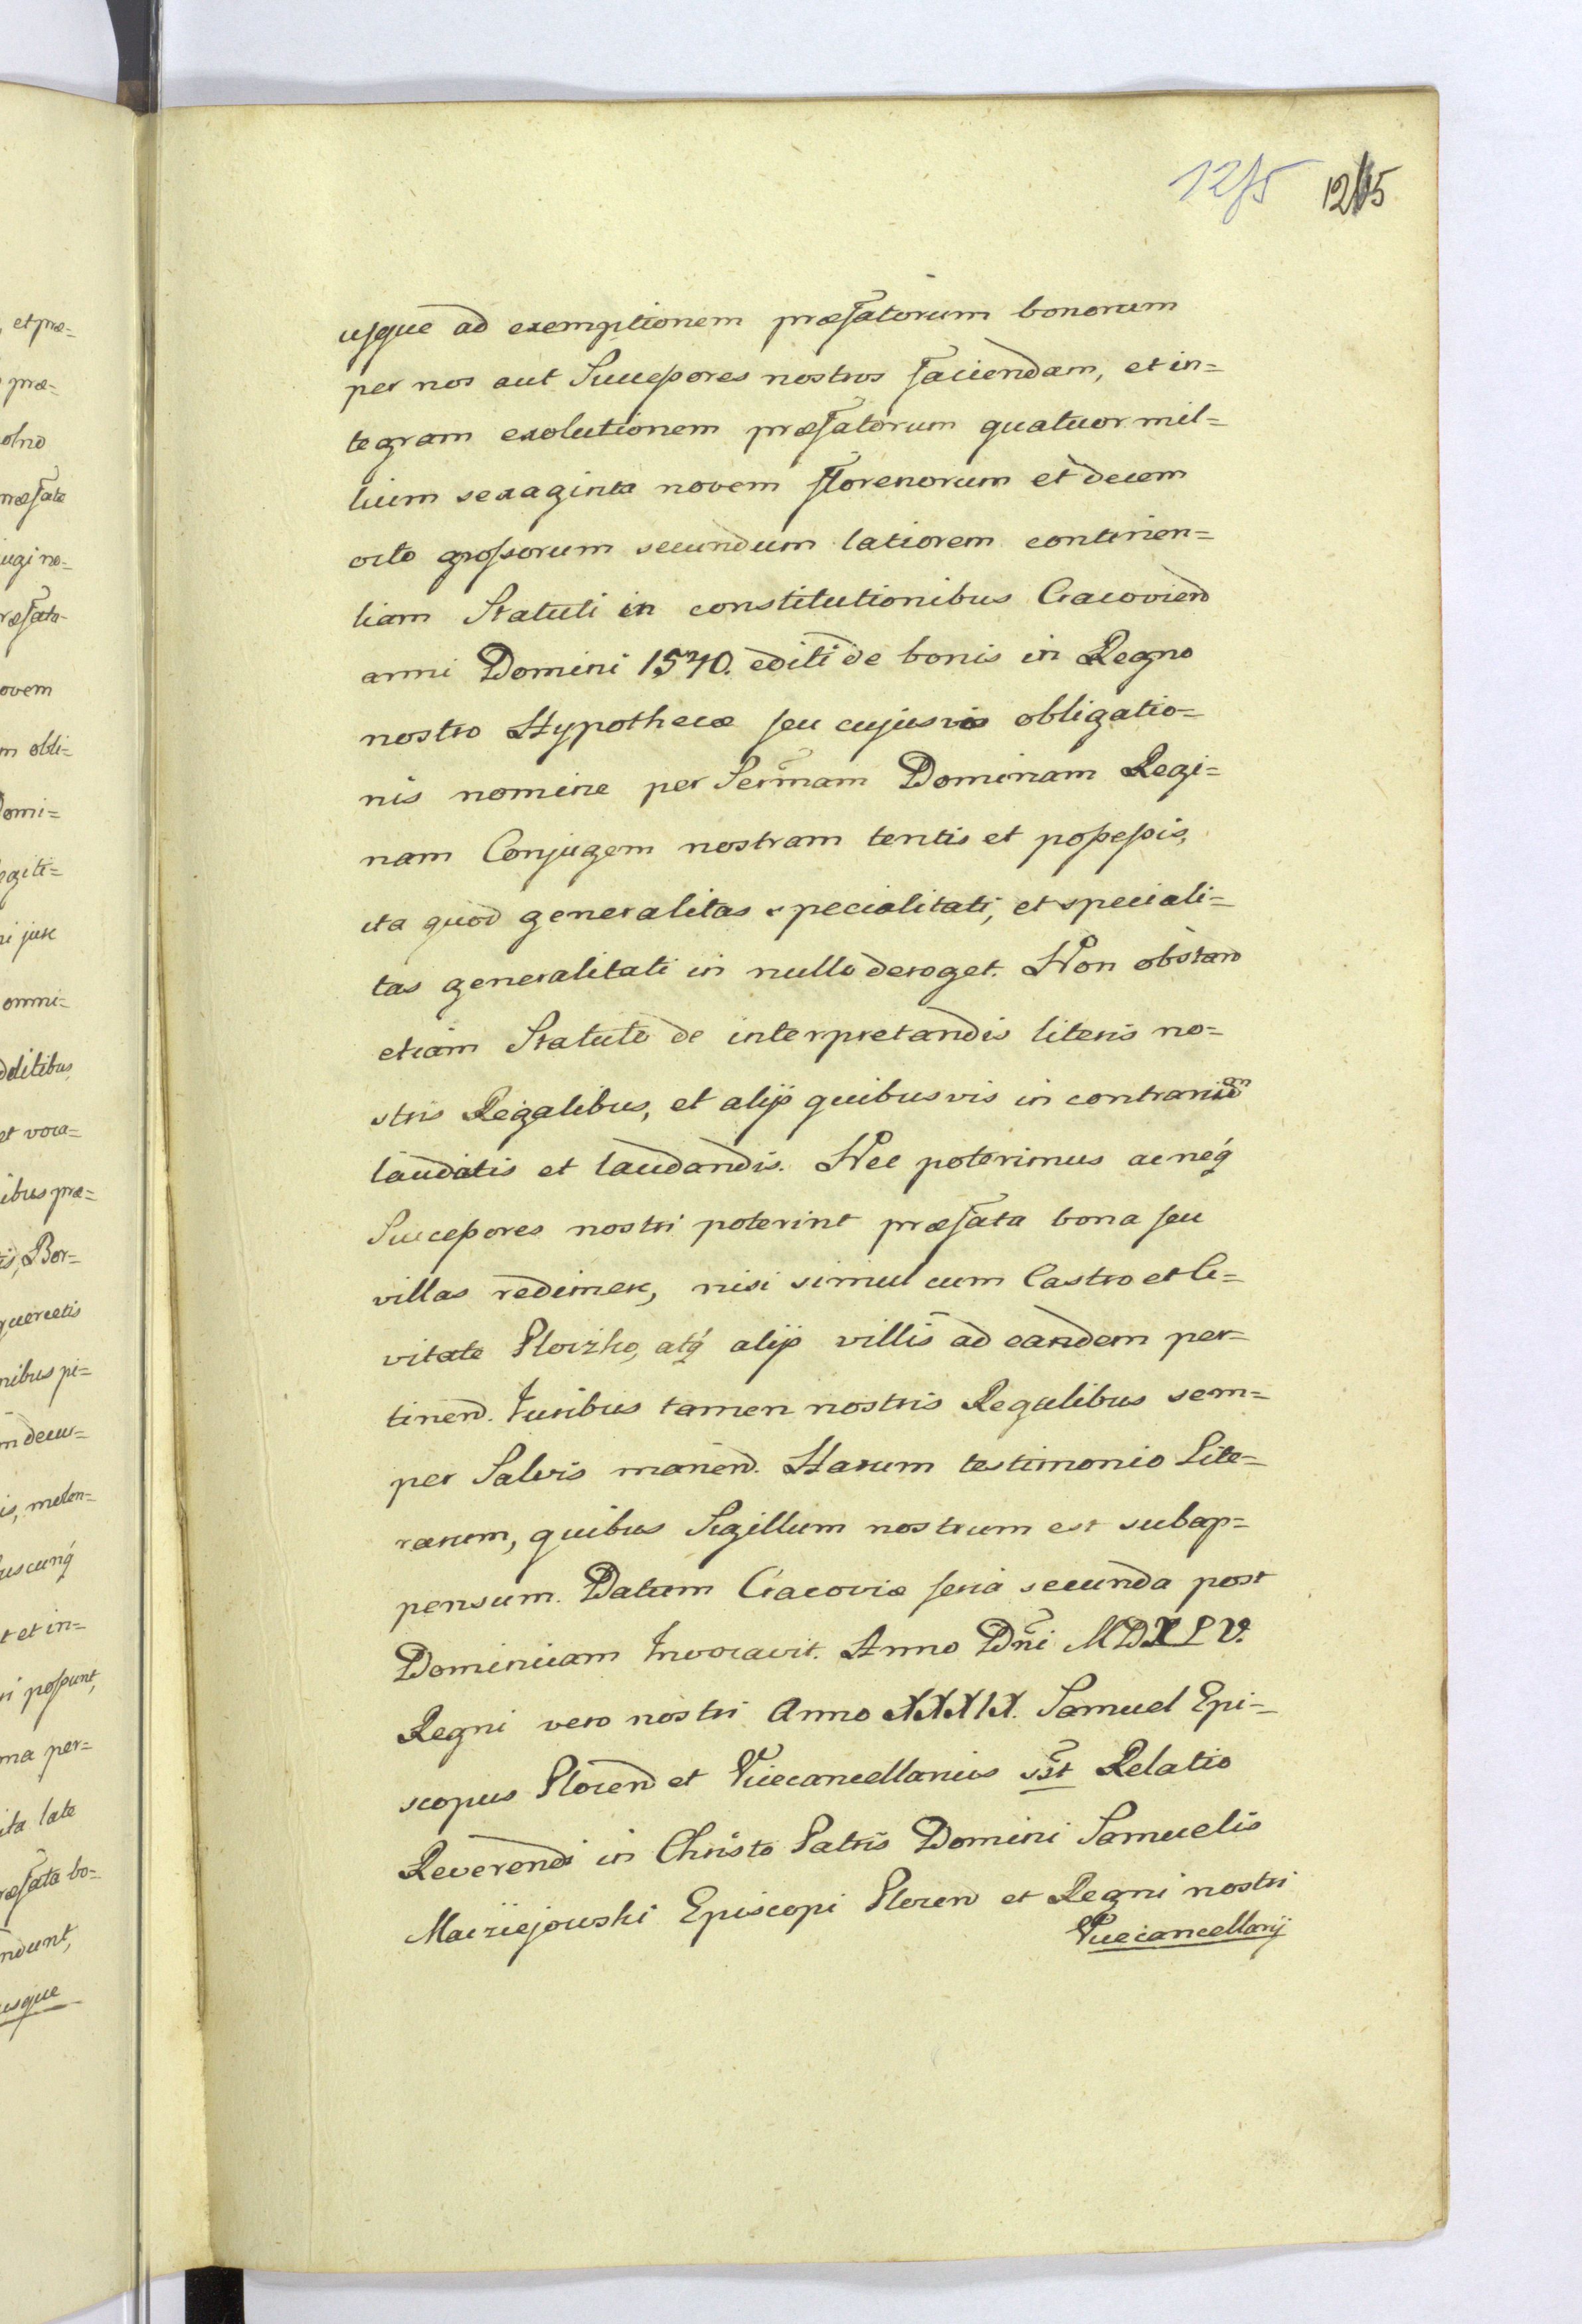 1215 1215
usque ad exemptionem præfatorum bonorum
per nos aut Successores nostros faciendam, et in=
tegram exolutionem præfatorum quatuor mil=
lium sexaginta novem florenorum et decem
octo grossorum secundum latiorem continen=
tiam Statuti in constitutionibus Cracoviend
anni Domini 1540. editi de bonis in Regno
nostro Hypothecæ seu cujusvis obligatio=
nis nomine per Sermam Dominam Regi=
nam Conjugem nostram tentis et possessis,
ita quod generalitas specialitati, et speciali=
tas generalitati in nullo deroget. Non obstand
etiam Statuto de interpretandis literis no=
stris Regalibus, et alijs quibusvis in contrarium
laudatis et laudandis. Nec poterimus ac neq́
Successores nostri poterint præfata bona seu
villas redimere, nisi simul cum Castro et Ci=
vitate Ploczko, atq́ alijs villis ad eandem per=
tinend. Juribus tamen nostris Regalibus sem=
per Salvis manend. Harum testimonio Lite=
rarum, quibus Sigillum nostrum est subap=
pensum. Datum Cracoviæ feria secunda post
Dominicam Invocavit. Anno Dni MDXLV.
Regni vero nostri Anno XXXIX. Samuel Epi=
scopus Plocend et Vicecancellarius sst Relatio
Reverendi in Christo Patris Domini Samuelis
Macziejowski Episcopi Plocend et Regni nostri
Vicecancellarij
et præ=
præ=
olno
ræfate
ugi no=
ræfata=
ovem
m obli=
Domi=
egiti=
i jure
omni=
dditibus
et voca=
ibus præ=
is, Bor=
quercetis
nibus pi=
m decur=
is, molen=
uscunq́
t et in=
ri possunt,
ma per=
ita late
ræfata bo=
ndunt,
usque